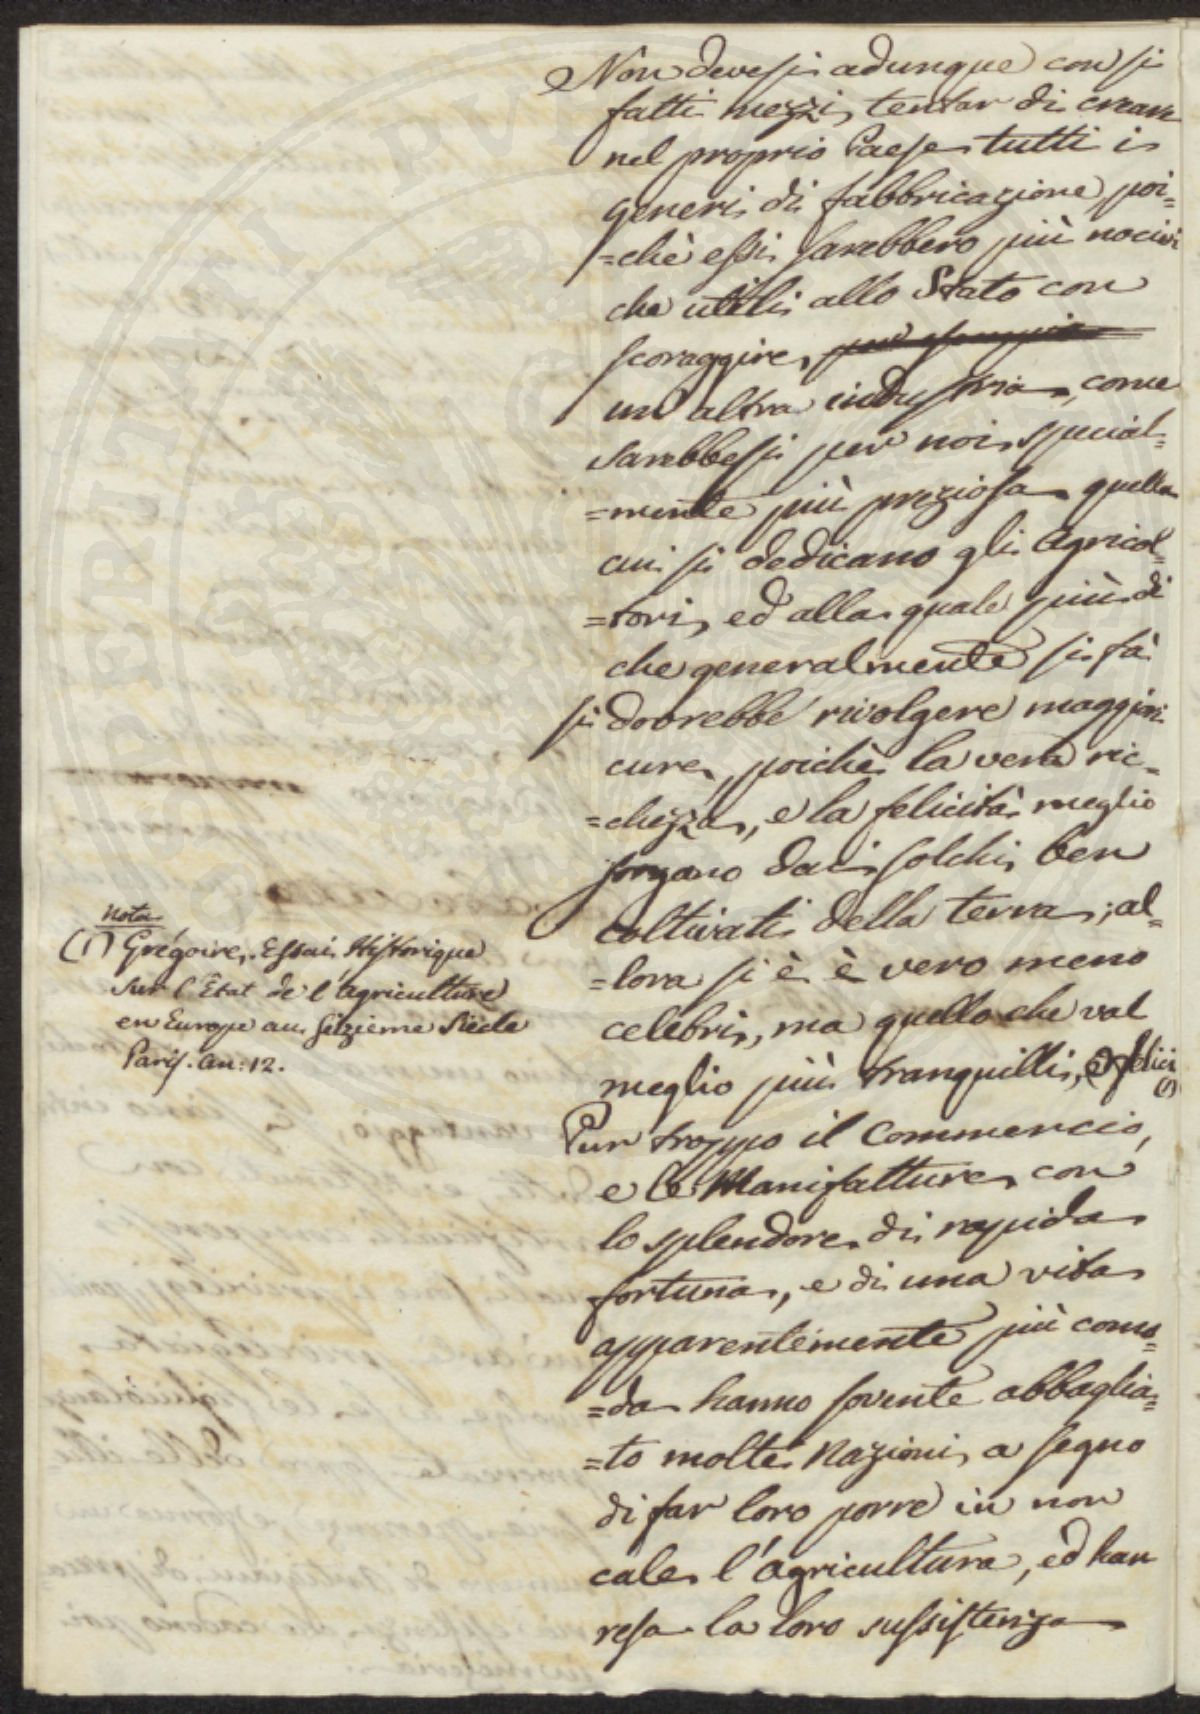 Non devesi adunque con si
fatti mezzi, tentar di creare
nel proprio Paese tutti i
generi di fabbricazione, poi=
=chè essi sarebbero più nocivi
che utili allo Stato con
scoraggire,
un altra industria, come
sarebbesi per noi special=
=mente più preziosa quella
cui si dedicano gli Agricol=
=tori, ed alla quale più di
che generalmente si fà
si dovrebbe rivolgere maggiori
cure, poichè la vera ric=
=chezza, e la felicità meglio
sorgano dai solchi ben
coltivati della terra; al=
=lora si è è vero meno
celebri, ma quello che val
meglio più tranquilli, e felici
(1)
Pur troppo il Commercio,
e le Manifatture con
lo splendore di rapida
fortuna, e di una vita
apparentemente più como=
=da hanno sovente abbaglia=
=to molte Nazioni, a segno
di far loro porre in non
cale l'agricultura, ed han
resa la loro sussistenza
Nota
(1) Grégoire, Essai Historique
sur l'Etat de l'agriculture
en Europe au seizieme Siecle
Paris. An: 12.
PERITATI PVBLIC